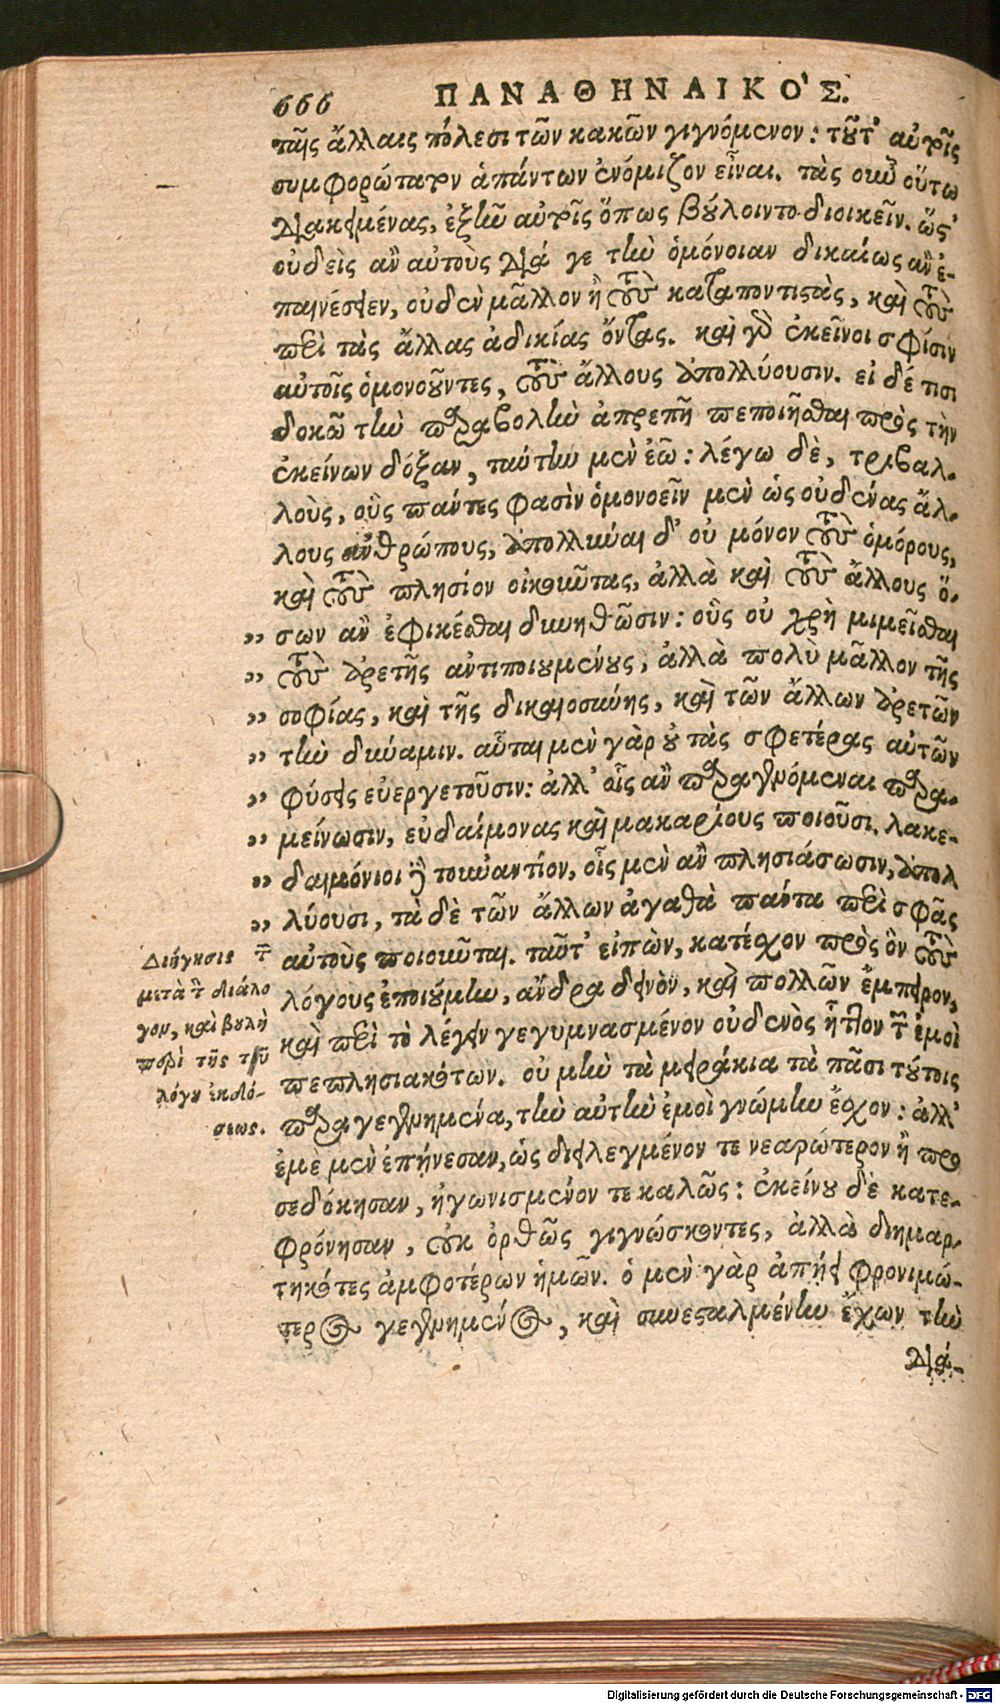 666 ΠΑΝΑΘΗΝΑΙΚΟ'Σ.
ταῖς ἄλλαις πόλεσι τῶν κακῶν γιγνόμενον: τοῦτ' αὐτοῖς
συμφορώτατον ἁπάντων ἐνόμιζον εἶναι. τὰς οὖν οὕτω
διακειμένας, ἐξῆν αὐτοῖς ὅπως βούλοιντο διοικεῖν. ὥστ'
οὐδεὶς ἂν αὐτοὺς διά γε τὴν ὁμόνοιαν δικαίως ἂν ἐ-
παινέσειεν, οὐδὲν μᾶλλον ἢ τοὺς καταποντιστὰς, καὶ τοὺς
περὶ τὰς ἄλλας ἀδικίας ὄντας. καὶ γὰρ ἐκεῖνοι σφίσιν
αὐτοῖς ὁμονοοῦντες, τοὺς ἄλλους ἀπολλύουσιν. εἰ δέ τισι
δοκῶ τὴν παραβολὴν ἀπρεπῆ πεποιῆσθαι πρὸς τὴν
ἐκείνων δόξαν, ταύτην μὲν ἐῶ: λέγω δὲ, τριβαλ-
λοὺς, οὓς πάντες φασὶν ὁμονοεῖν μὲν ὡς οὐδένας ἄλ-
λους ἀνθρώπους, ἀπολλύναι δ' οὐ μόνον τοὺς ὁμόρους,
καὶ τοὺς πλησίον οἰκοῦντας, ἀλλὰ καὶ τοὺς ἄλλους ὅ-
,, σων ἂν ἐφικέσθαι δυνηθῶσιν: οὓς οὐ χρὴ μιμεῖσθαι
,, τοὺς ἀρετῆς ἀντιποιουμένους, ἀλλὰ πολὺ μᾶλλον τῆς
,, σοφίας, καὶ τῆς δικαιοσύνης, καὶ τῶν ἄλλων ἀρετῶν
,, τὴν δύναμιν. αὗται μὲν γὰρ οὐ τὰς σφετέρας αὐτῶν
,, φύσεις εὐεργετοῦσιν: ἀλλ' οἷς ἂν παραγενόμεναι παρα-
,, μείνωσιν, εὐδαίμονας καὶ μακαρίους ποιοῦσι. λακε-
,, δαιμόνιοι δὲ τοὐναντίον, οἷς μὲν ἂν πλησιάσωσιν, ἀπολ
,, λύουσι, τὰ δὲ τῶν ἄλλων ἀγαθὰ πάντα περὶ σφᾶς
αὐτοὺς ποιοῦνται. ταῦτ' εἰπὼν, κατέσχον πρὸς ὃν τοὺς
λόγους ἐποιούμην, ἄνδρα δεινὸν, καὶ πολλῶν ἔμπειρον,
καὶ περὶ τὸ λέγειν γεγυμνασμένον οὐδενὸς ἧττον τῶν ἐμοὶ
πεπλησιακότων. οὐ μὴν τὰ μειράκια τὰ πᾶσι τούτοις
παραγεγενημένα, τὴν αὐτὴν ἐμοὶ γνώμην ἔσχον: ἀλλ'
ἐμὲ μὲν ἐπῄνεσαν, ὡς διειλεγμένον τε νεαρώτερον ἢ προ
σεδόκησαν, ἠγωνισμένον τε καλῶς: ἐκείνου δὲ κατε-
φρόνησαν, οὐκ ὀρθῶς γιγνώσκοντες, ἀλλὰ διημαρ-
τηκότες ἀμφοτέρων ἡμῶν. ὁ μὲν γὰρ ἀπῄει φρονιμώ-
τερος γεγενημένος, καὶ συνεσταλμένην ἔχων τὴν
διά-
Διήγησις τῶν
μετὰ τὸν διάλο
γον, καὶ βουλὴ
περὶ τῆς τοῦ
λόγου ἐκδό-
σεως.
Digitalisierung gefördert durch die Deutsche Forschungsgemeinschaft - DFG